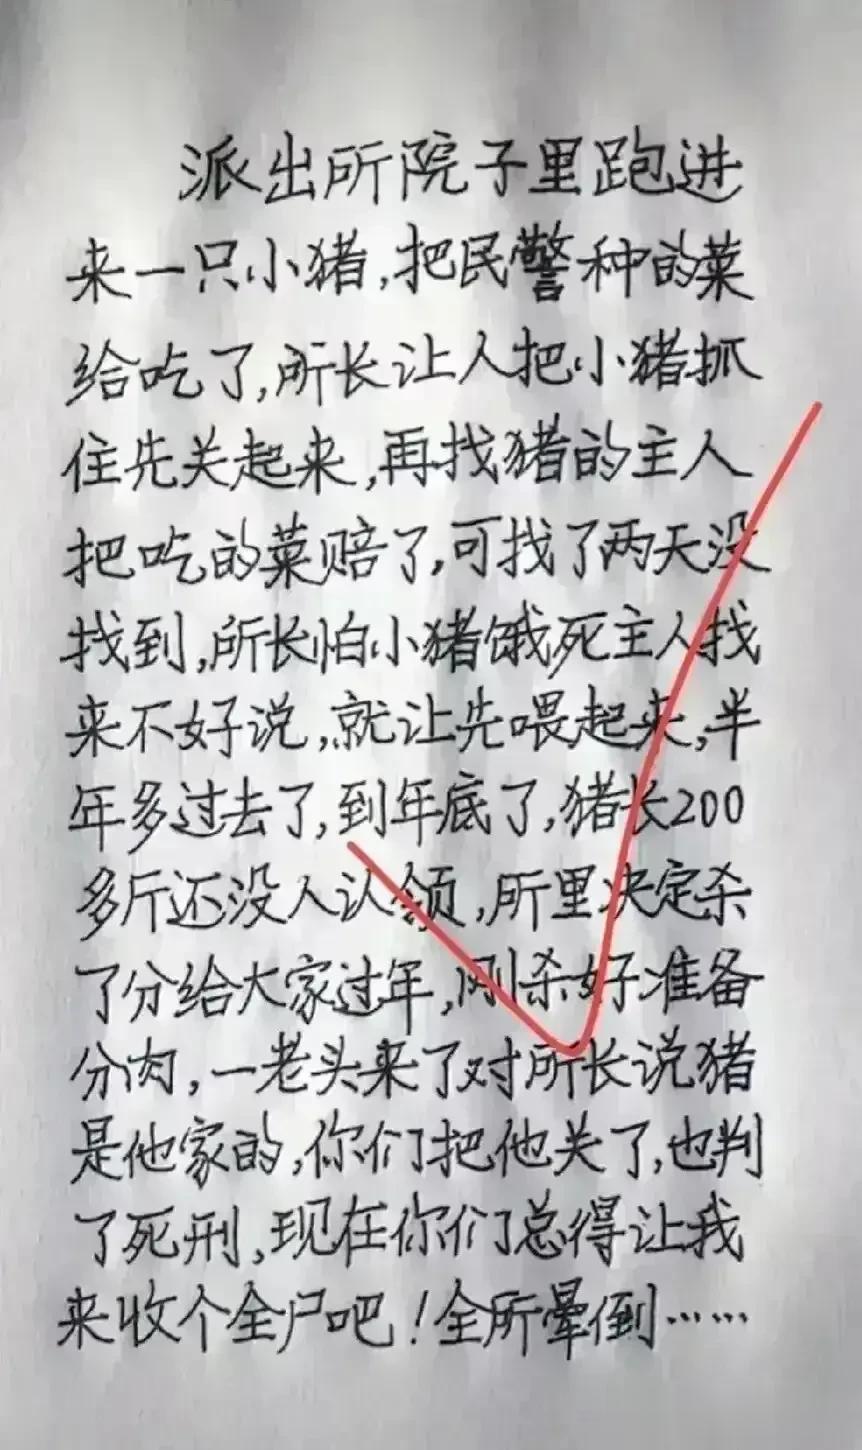 派出所院子里跑进
来一只小猪,把民警种的菜
给吃了,所长让人把小猪抓
住先关起来,再找猪的主人
把吃的菜赔了,可找了两天没
找到,所长怕小猪饿死主人找
来不好说,就让先喂起来,半
年多过去了,到年底了,猪长200
多斤还没人认领,所里决定杀
了分给大家过年,刚杀好准备
分肉,一老头来了对所长说猪
是他家的,你们把他关了,也判
了死刑,现在你们总得让我
来收个全尸吧!全所晕倒……